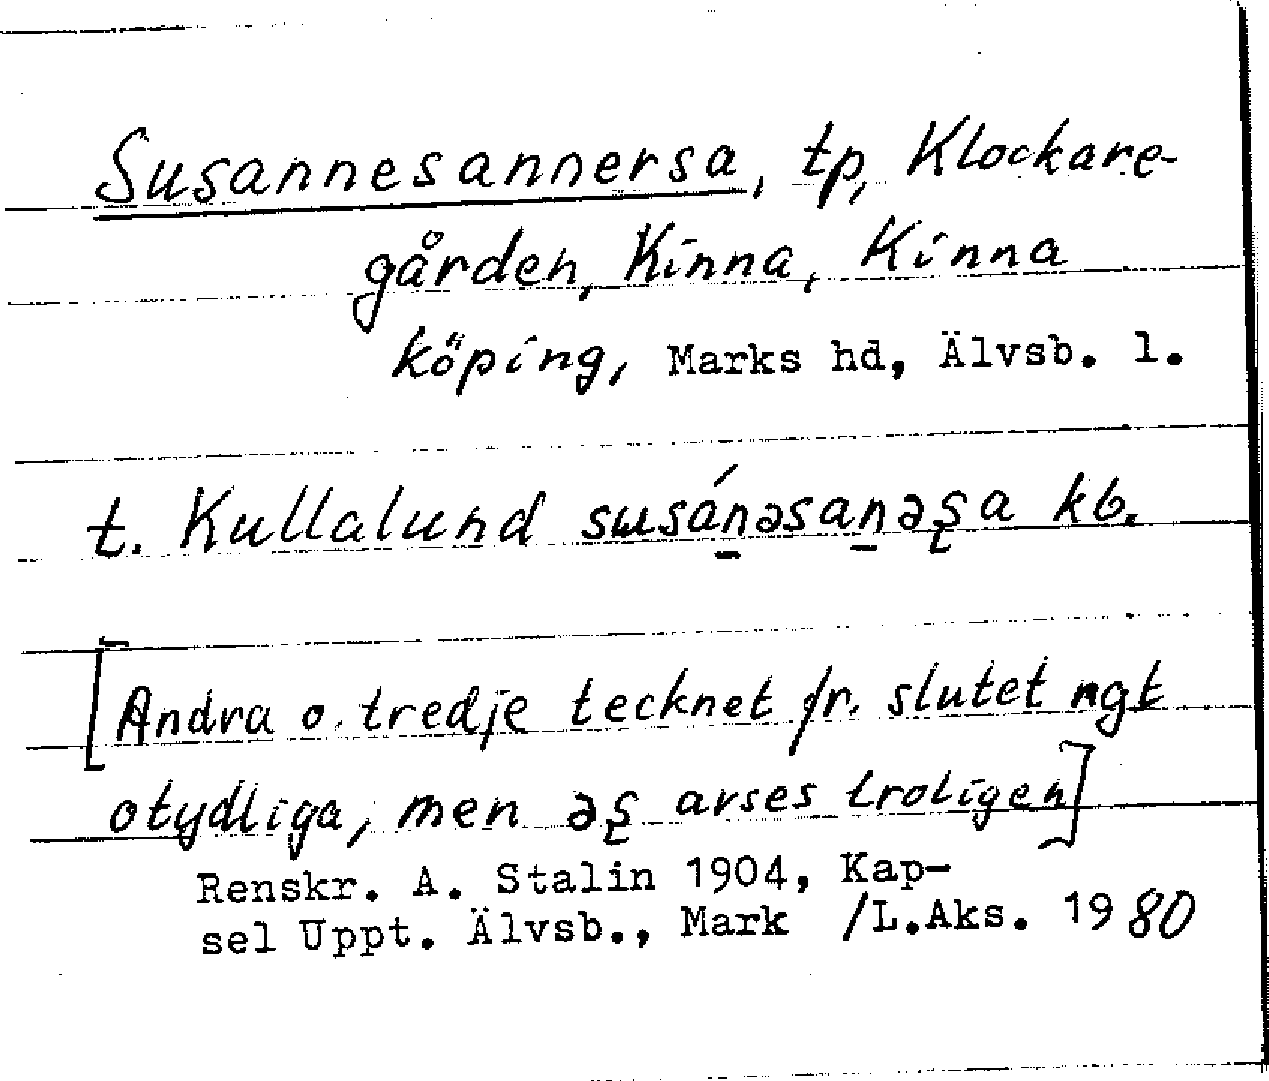 Susannesannersa, tp, Klockare-
gården, Kinna, Kinna
köping, Marks hd, Älvsb. l.
t. Kullalund susán̲əsan̲əʂa kb.
[Andra o. tredje tecknet fr. slutet ngt
otydliga, men əʂ avses troligen]
Renskr. A. Stalin 1904, Kap-
sel Uppt. Älvsb., Mark /L.Aks. 1980